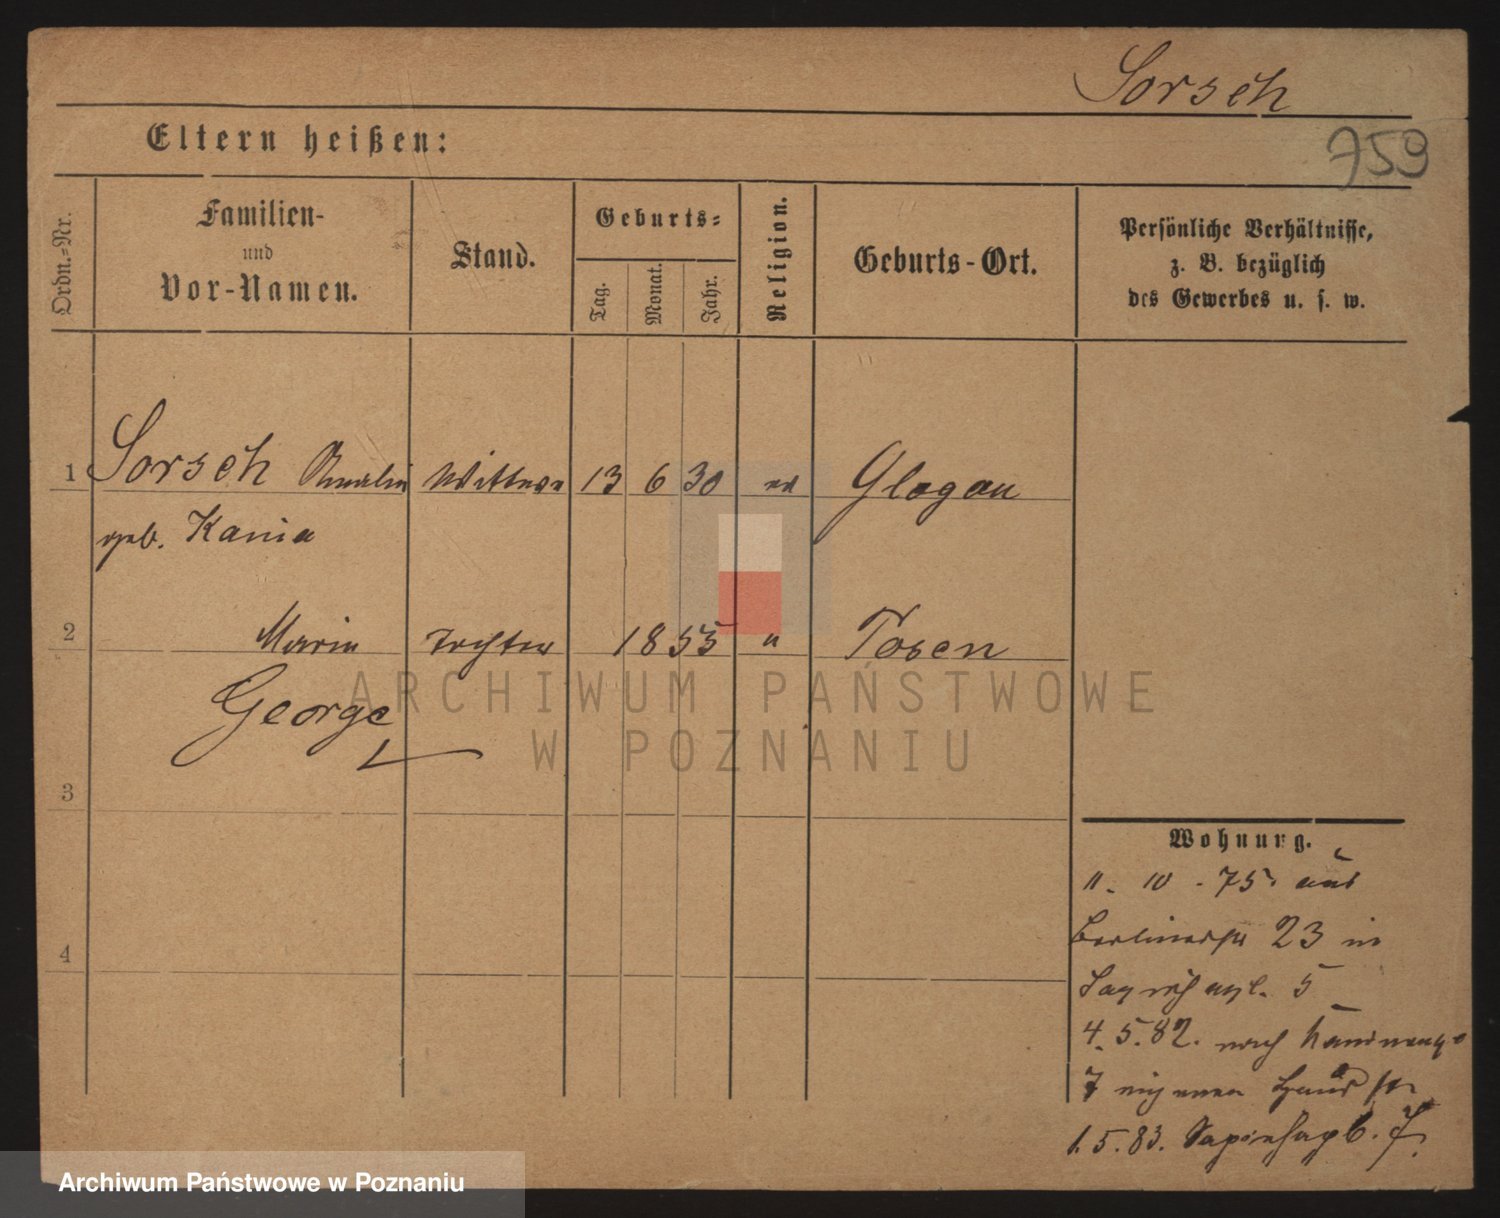 Sorsch
Eltern heißen:
759
Ordn.-Nr.
Familien-
und
Vor-Namen.
Stand.
Geburts-
Tag.
Monat.
Jahr.
Religion.
Geburts-Ort.
Persönliche Verhältnisse,
z. B. bezüglich
des Gewerbes u. s. w.
1 Sorsch Amalie Wittwe 13 6 30 ev Glogau
geb. Kania
2 Marie Tochter 1855 " Posen
George
ARCHIWUM PAŃSTWOWE
W POZNANIU
3
4
Wohnung.
11. 10. 75. aus
Berlinerstr 23 in
5
4. 5. 82. nach
7
1. 5. 83. Sapiehapl. 7.
Archiwum Państwowe w Poznaniu